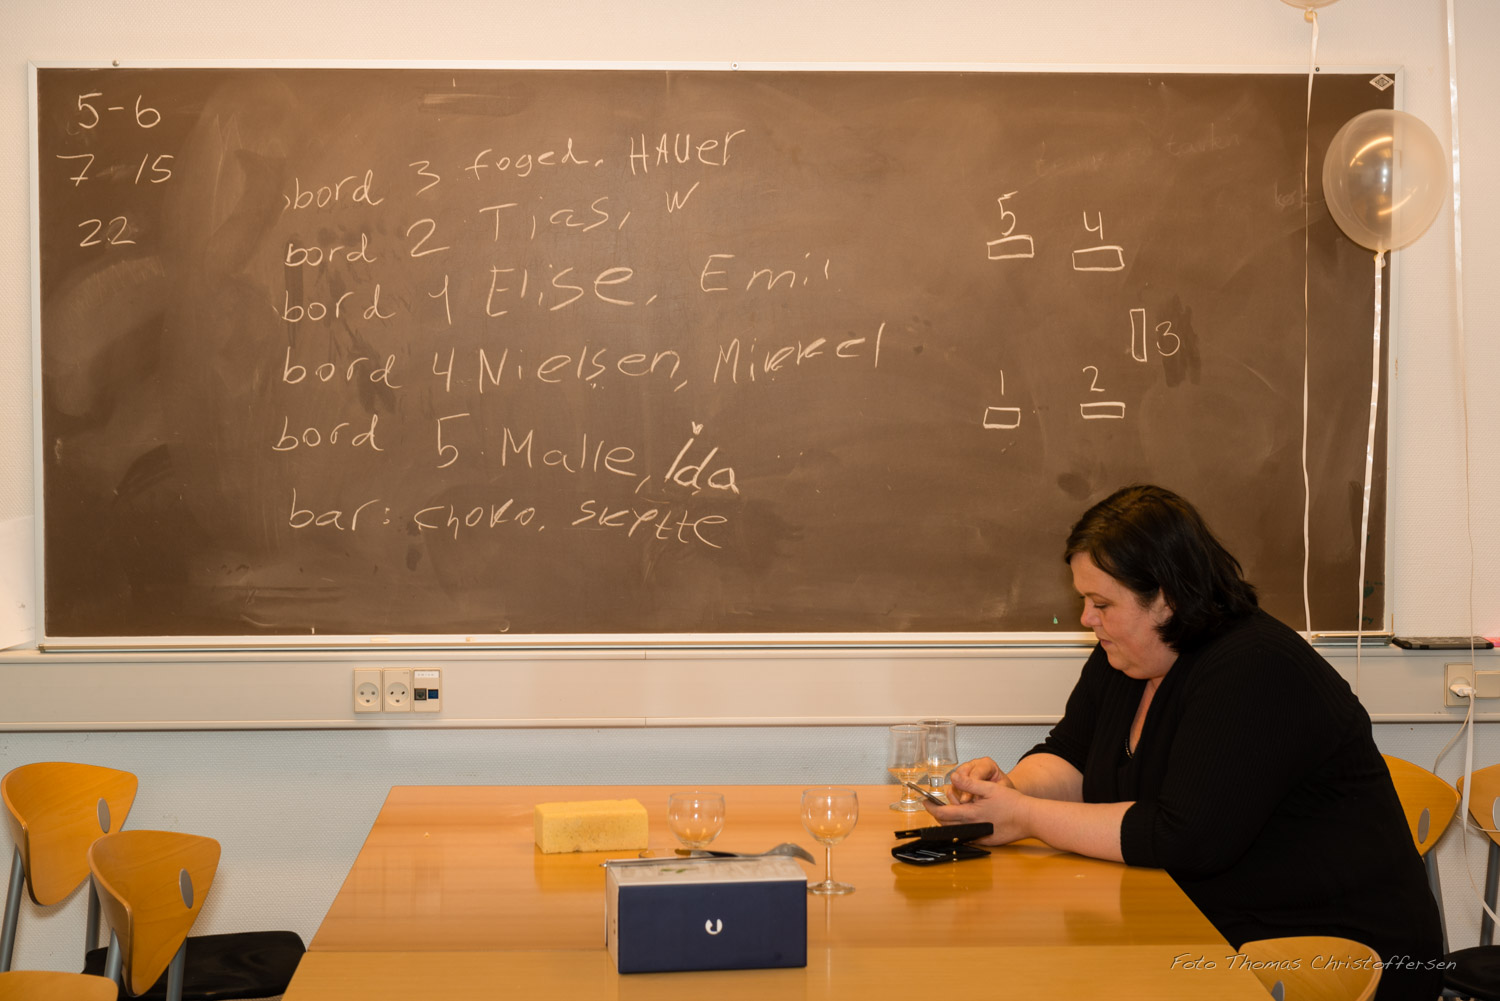 5-6
7-15
22
bord 3 foged. HAUer
bord 2 Tjas, W
bord 1 Elise, Emil
bord 4 Nielsen, Mikkel
bord 5 Malle, Ida
bar: choko. skytte
5 4
3
1 2
Foto Thomas Christoffersen